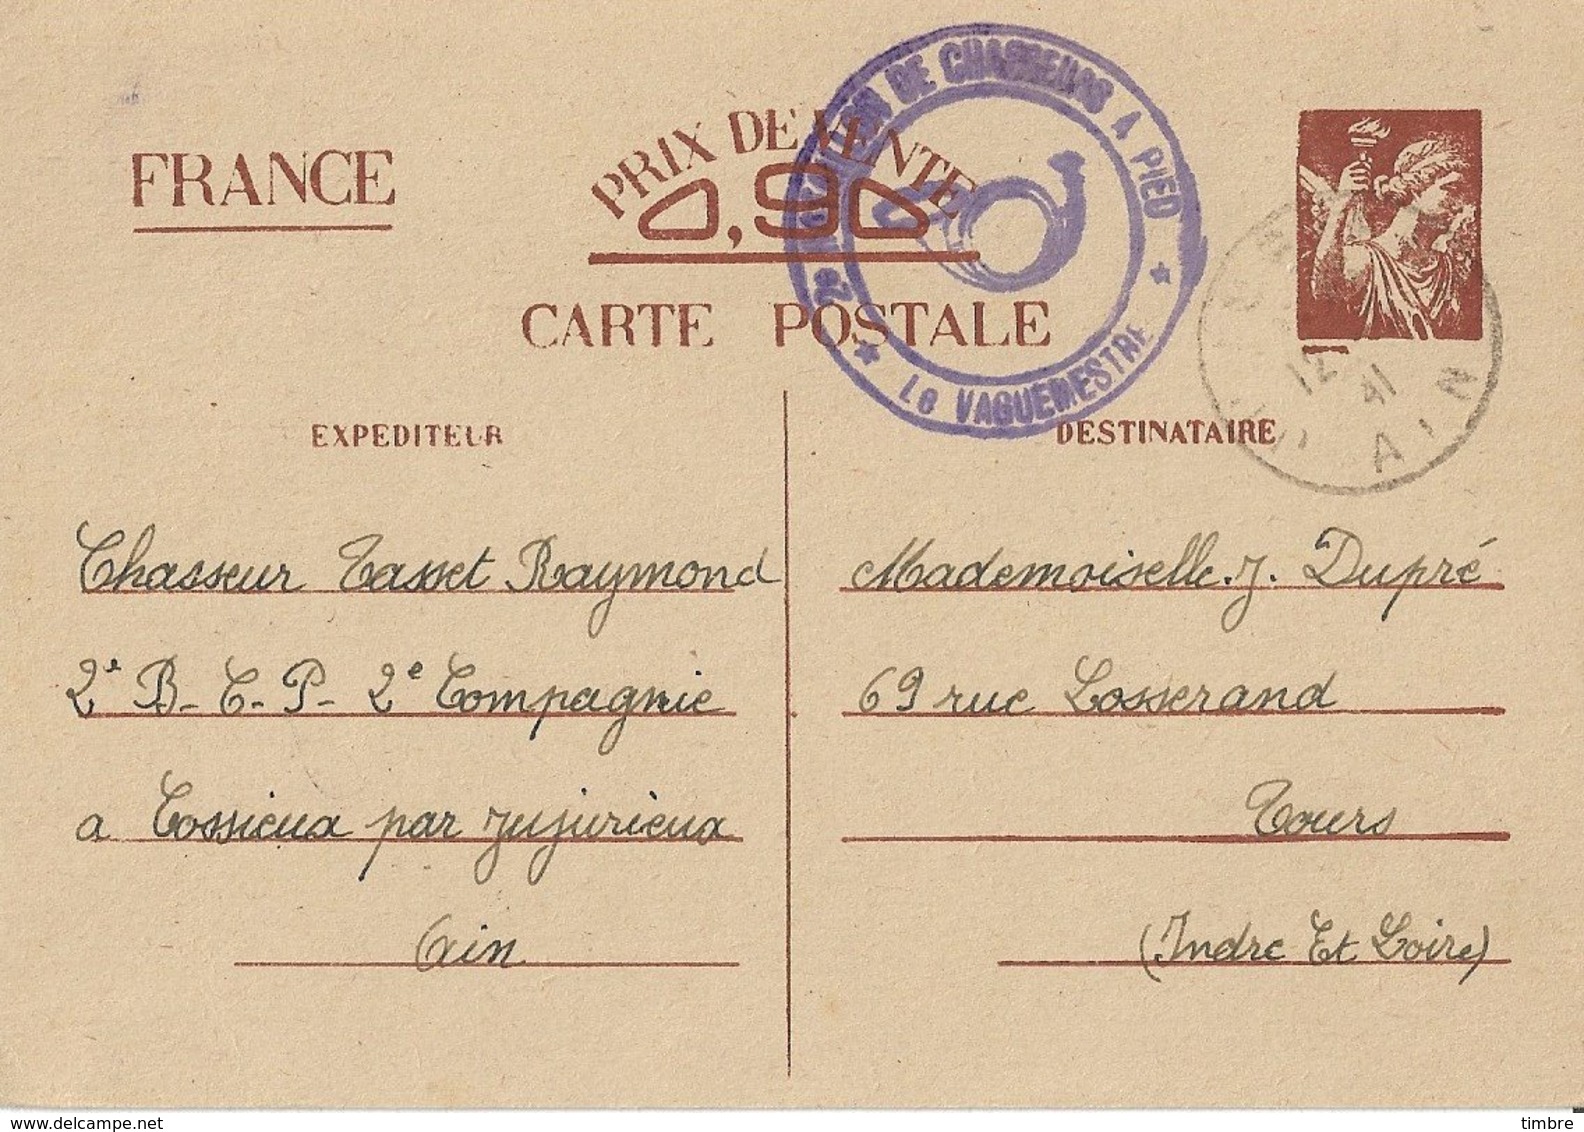 FRANCE
PRIX DE VENTE
0,90
CARTE POSTALE
2e BATAILLON DE CHASSEURS A PIED
Le VAGUEMESTRE
12
41
AIN
EXPEDITEUR
Chasseur Tasset Raymond
2e B-C-P- 2e Compagnie
a Cossieux par Jujurieux
Ain
DESTINATAIRE
Mademoiselle. J. Dupré
69 rue Losserand
Tours
(Indre Et Loire)
www.delcampe.net
timbre